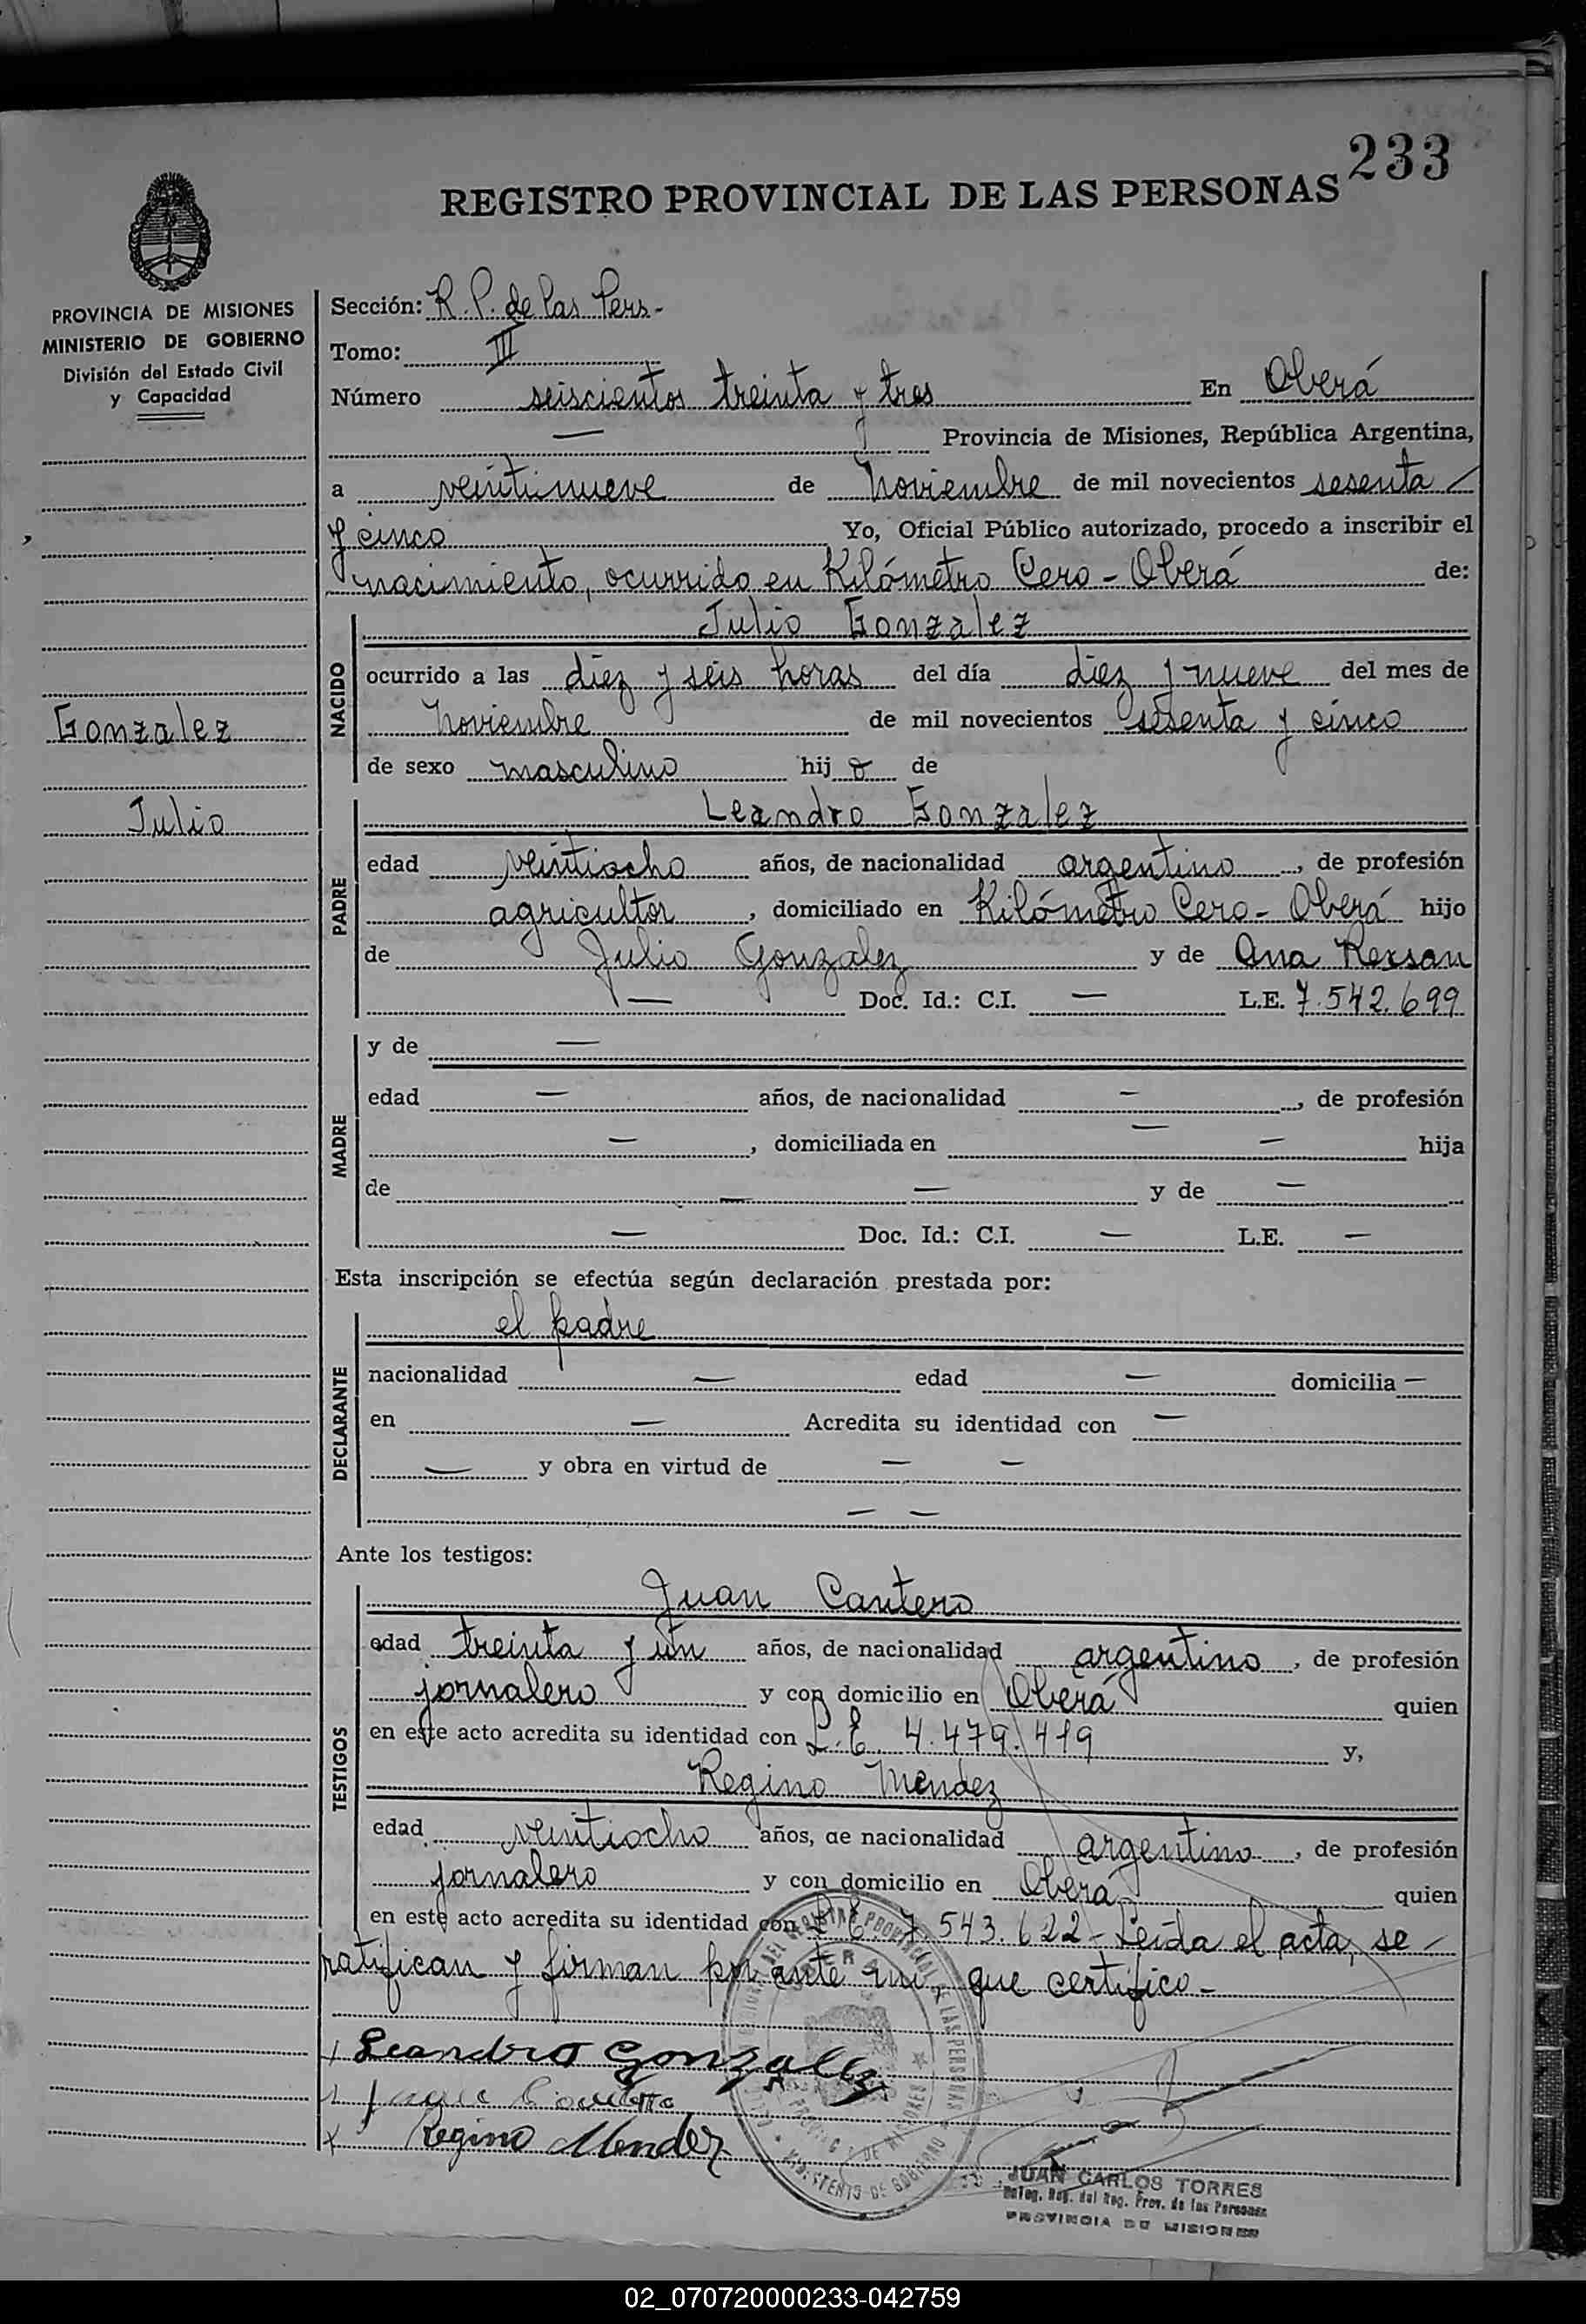 233
REGISTRO PROVINCIAL DE LAS PERSONAS
PROVINCIA DE MISIONES
MINISTERIO DE GOBIERNO
División del Estado Civil
y Capacidad
Gonzalez
Julio
Sección: R. P. de las Pers.-
Tomo: III
Número seiscientos treinta y tres En Oberá
— Provincia de Misiones, República Argentina,
a veintinueve de Noviembre de mil novecientos sesenta
y cinco Yo, Oficial Público autorizado, procedo a inscribir el
nacimiento, ocurrido en Kilómetro Cero - Oberá de:
NACIDO
Julio Gonzalez
ocurrido a las diez y seis horas del día diez y nueve del mes de
Noviembre de mil novecientos sesenta y cinco
de sexo masculino hij o de
PADRE
Leandro Gonzalez
edad veintiocho años, de nacionalidad argentino, de profesión
agricultor, domiciliado en Kilómetro Cero - Oberá hijo
de Julio Gonzalez y de Ana
— Doc. Id.: C.I. — L.E. 7.542.699
MADRE
y de —
edad — años, de nacionalidad —, de profesión
—, domiciliada en — — hija
de — — y de —
— Doc. Id.: C.I. — L.E. —
Esta inscripción se efectúa según declaración prestada por:
DECLARANTE
el padre
nacionalidad — edad — domicilia —
en — Acredita su identidad con —
— y obra en virtud de — —
— —
Ante los testigos:
TESTIGOS
Juan Cantero
edad treinta y un años, de nacionalidad argentino, de profesión
jornalero y con domicilio en Oberá quien
en este acto acredita su identidad con L.E. 4.479.419 y,
Regino Mendez
edad veintiocho años, de nacionalidad argentino, de profesión
jornalero y con domicilio en Oberá quien
en este acto acredita su identidad con L.E. 7.543.622 - Leída el acta, se -
ratifican y firman por ante mí, que certifico -
Leandro Gonzalez
Regino Mendez
JUAN CARLOS TORRES
Deleg. Reg. del Reg. Prov. de las Personas
PROVINCIA DE MISIONES
02_070720000233-042759